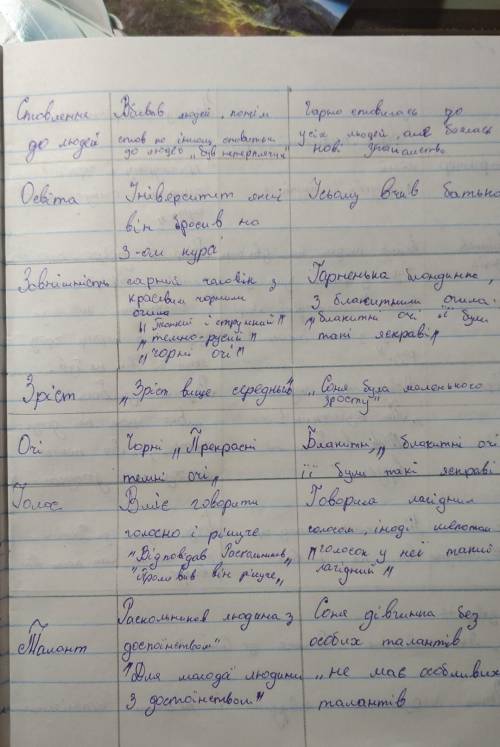 Ставлення Вбивав людей, потім Гарно ставилась до
до людей став по іншому ставиться усіх людей, але боялась
до людей „був нетерплячим" нові знайомства
Освіта Університет який Усьому вчив батько
він бросив на
3-ом курсі
Зовнішність гарний чоловік з Гарненька блондинка,
красивим чорними з блакитними очима.
очима „блакитні очі її були
„Тонкий і стрункий" такі яскраві„
„темно-русий"
„чорні очі"
Зріст „Зріст вище середный" „Соня була маленького
зросту"
Очі Чорні „Прекрасні Блакитні, „блакитні очі
темні очі„ її були такі яскраві
Голос Вміє говорити Говорила лагідним
голосно і рішуче голосом, іноді шепотом
"Відповідав Раскольников„ „голосок у неї такий
"Промовив він рішуче„ лагідний"
Талант Раскольников людина з Соня дівчинка без
достоінством" особих талантів
"Для молода людини „не має особливих
з достоінством" талантів